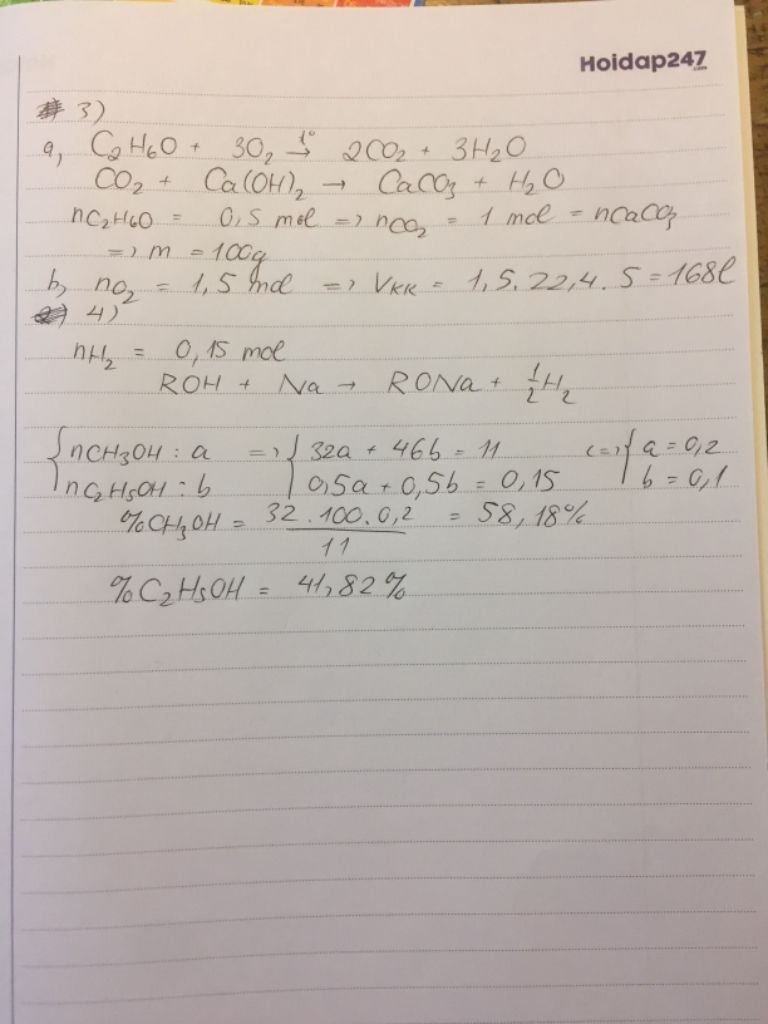 Hoidap247
.com
3)
a, C2H6O + 3O2 t°→ 2CO2 + 3H2O
CO2 + Ca(OH)2 → CaCO3 + H2O
nC2H6O = 0,5 mol => nCO2 = 1 mol = nCaCO3
=> m = 100g
b, nO2 = 1,5 mol => VKK = 1,5.22,4.5 = 168l
4)
nH2 = 0,15 mol
ROH + Na → RONa + 1/2 H2
{ nCH3OH : a => { 32a + 46b = 11 <=> { a = 0,2
nC2H5OH : b 0,5a + 0,5b = 0,15 b = 0,1
%CH3OH = 32.100.0,2 / 11 = 58,18%
%C2H5OH = 41,82%